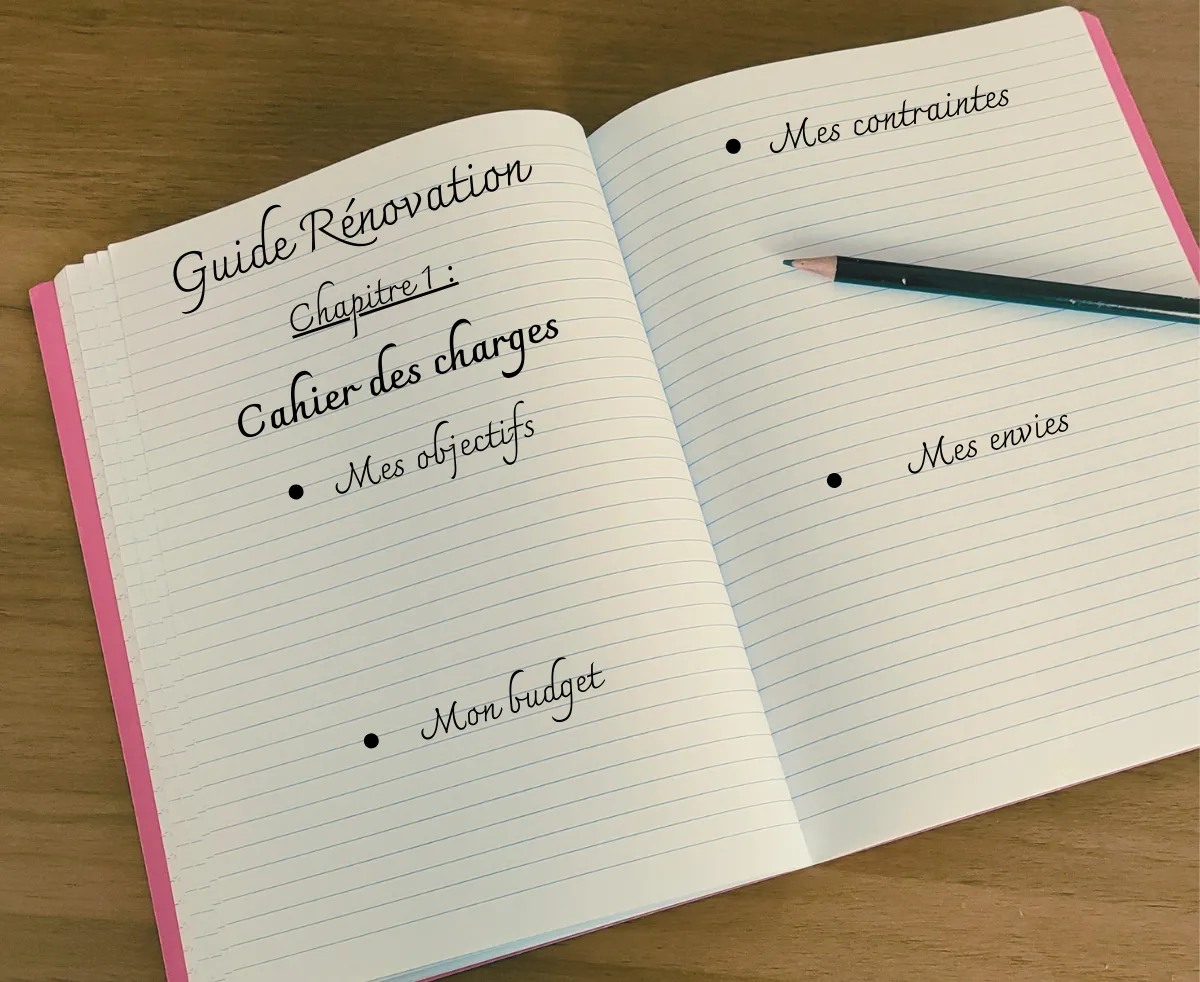 Guide Rénovation
Chapitre 1 :
Cahier des charges
• Mes objectifs
• Mon budget
• Mes contraintes
• Mes envies